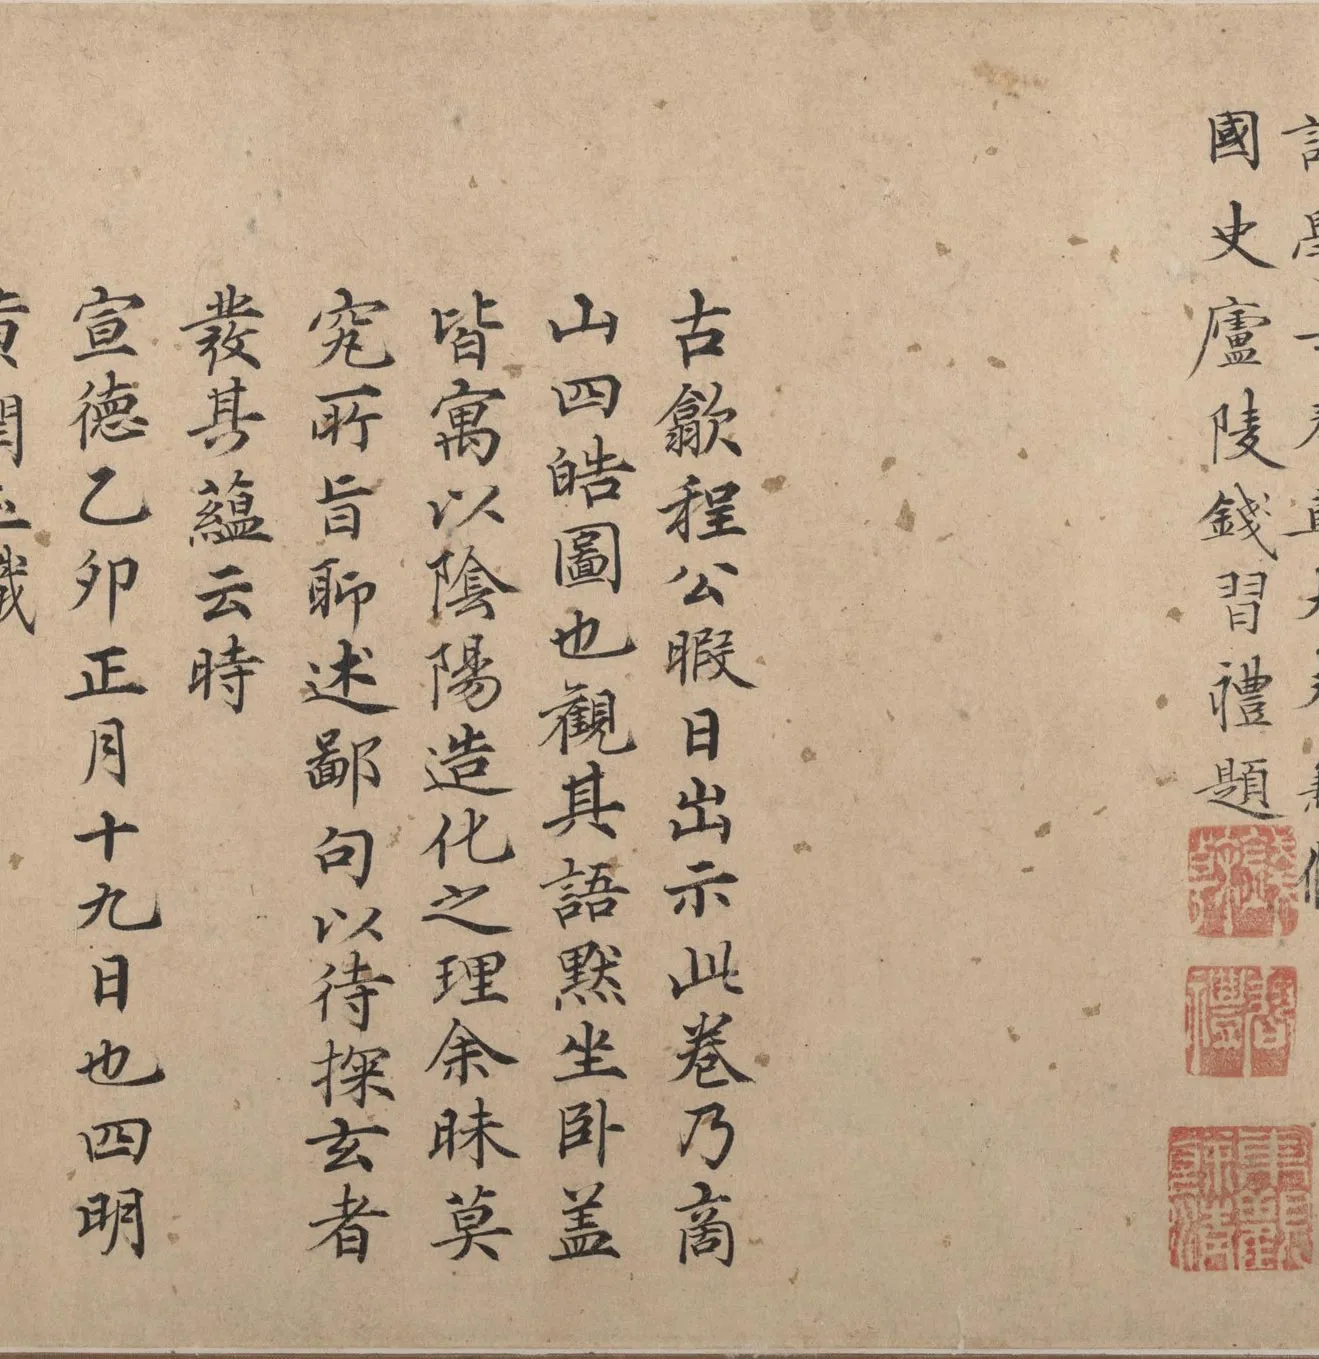 國史廬陵錢習禮題
古歙程公暇日出示此卷乃商
山四皓圖也觀其語默坐卧盖
皆寓以陰陽造化之理余昧莫
究所旨聊述鄙句以待探玄者
發其蘊云時
宣德乙卯正月十九日也四明